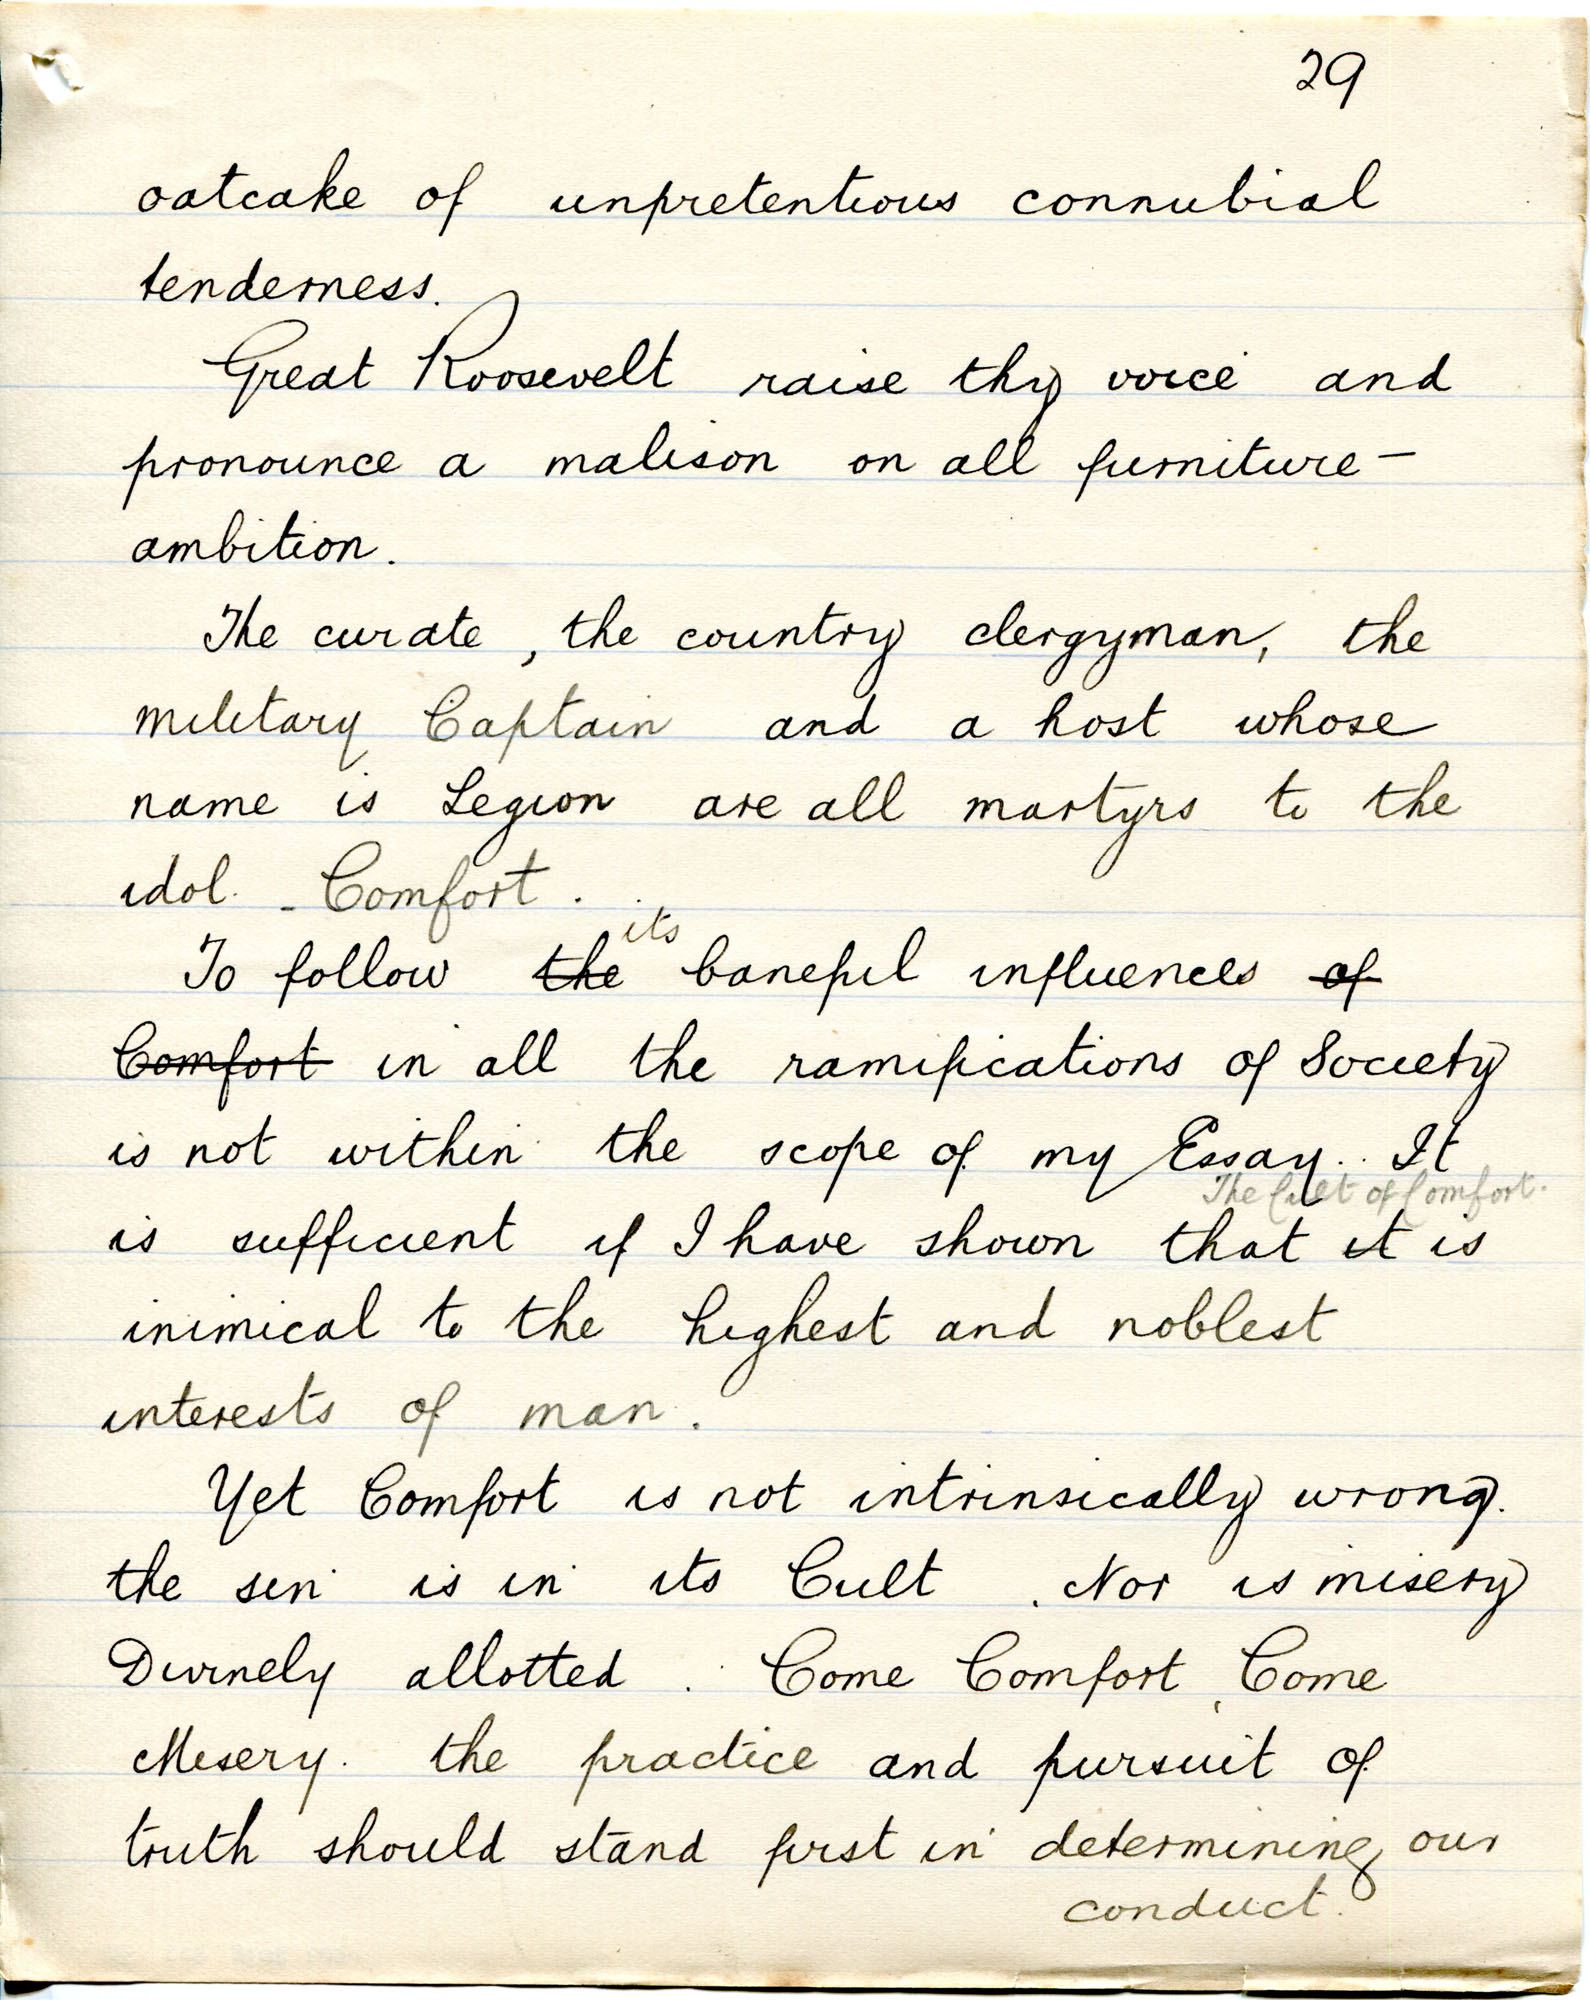 29
oatcake of unpretentious connubial
tenderness.
Great Roosevelt raise thy voice and
pronounce a malison on all furniture-
ambition.
The curate, the country clergyman, the
military Captain and a host whose
name is Legion are all martyrs to the
idol - Comfort.
its
To follow the baneful influences of
Comfort in all the ramifications of Society
is not within the scope of my Essay. It
The Cult of Comfort.
is sufficient if I have shown that it is
inimical to the highest and noblest
interests of man.
Yet Comfort is not intrinsically wrong.
the sin is in its Cult. Nor is misery
Divinely allotted. Come Comfort, Come
Misery. the practice and pursuit of
truth should stand first in determining our
conduct.